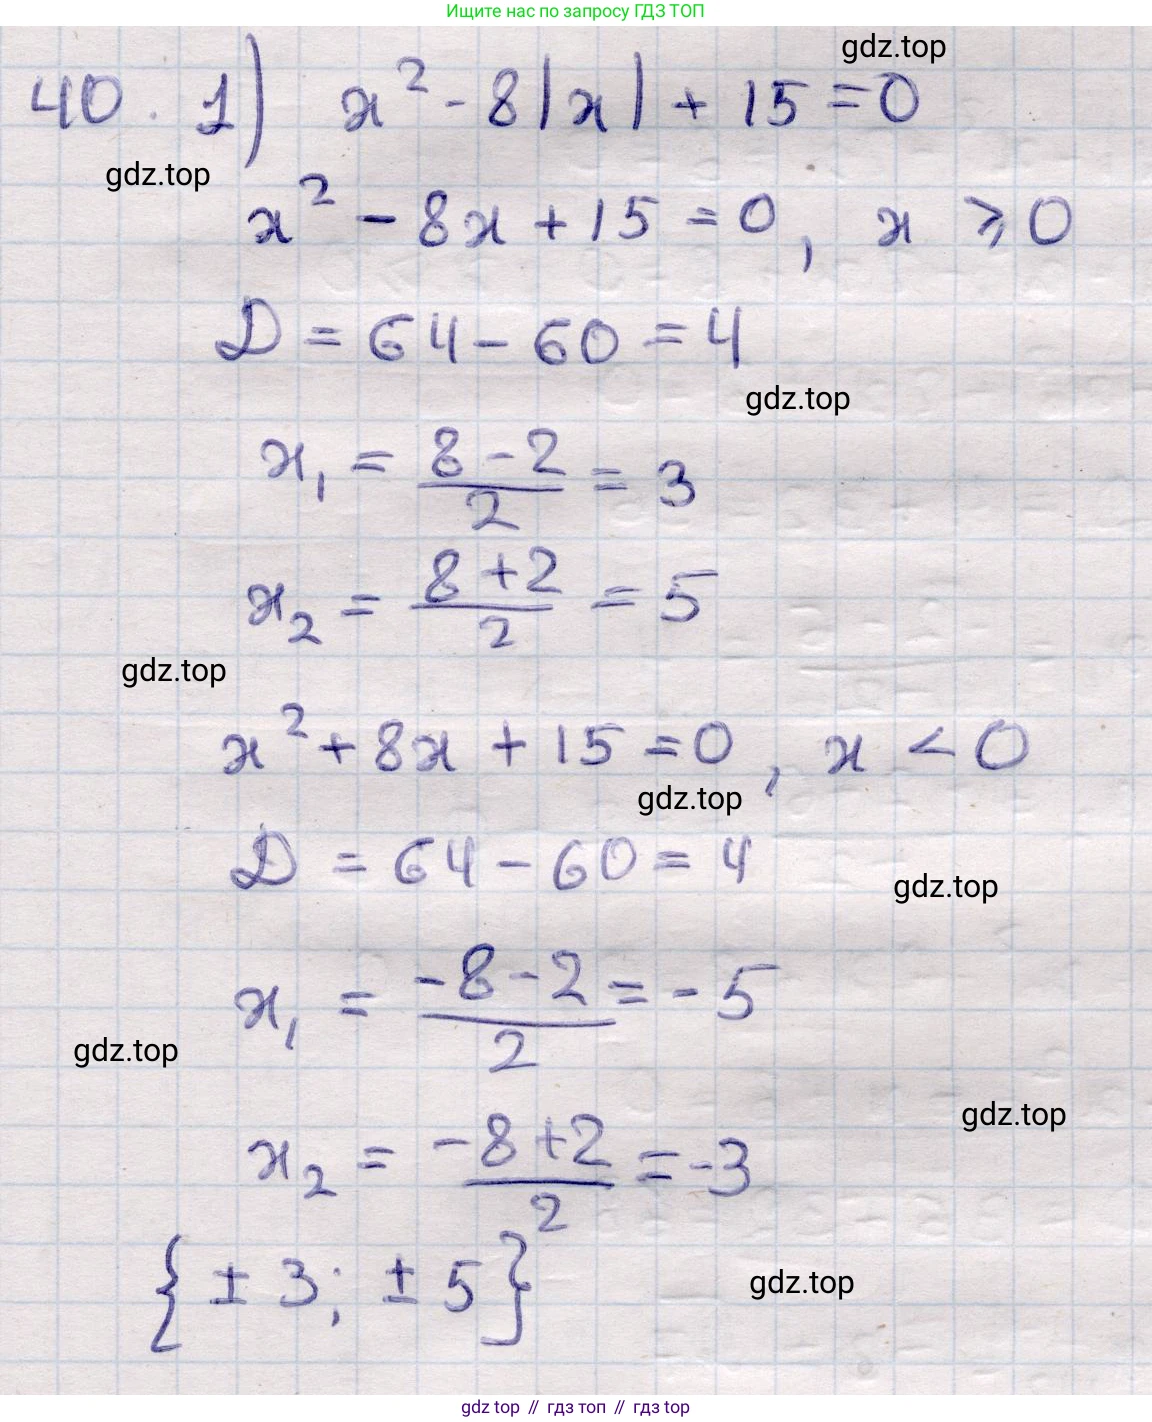 Ищите нас по запросу ГДЗ ТОП
gdz.top
40. 1) x² - 8|x| + 15 = 0
gdz.top
x² - 8x + 15 = 0, x ⩾ 0
D = 64 - 60 = 4
gdz.top
x₁ = (8 - 2)/2 = 3
x₂ = (8 + 2)/2 = 5
gdz.top
x² + 8x + 15 = 0, x < 0
gdz.top
D = 64 - 60 = 4
gdz.top
x₁ = (-8 - 2)/2 = -5
gdz.top
gdz.top
x₂ = (-8 + 2)/2 = -3
{± 3; ± 5}
gdz.top
gdz top // гдз топ // гдз top